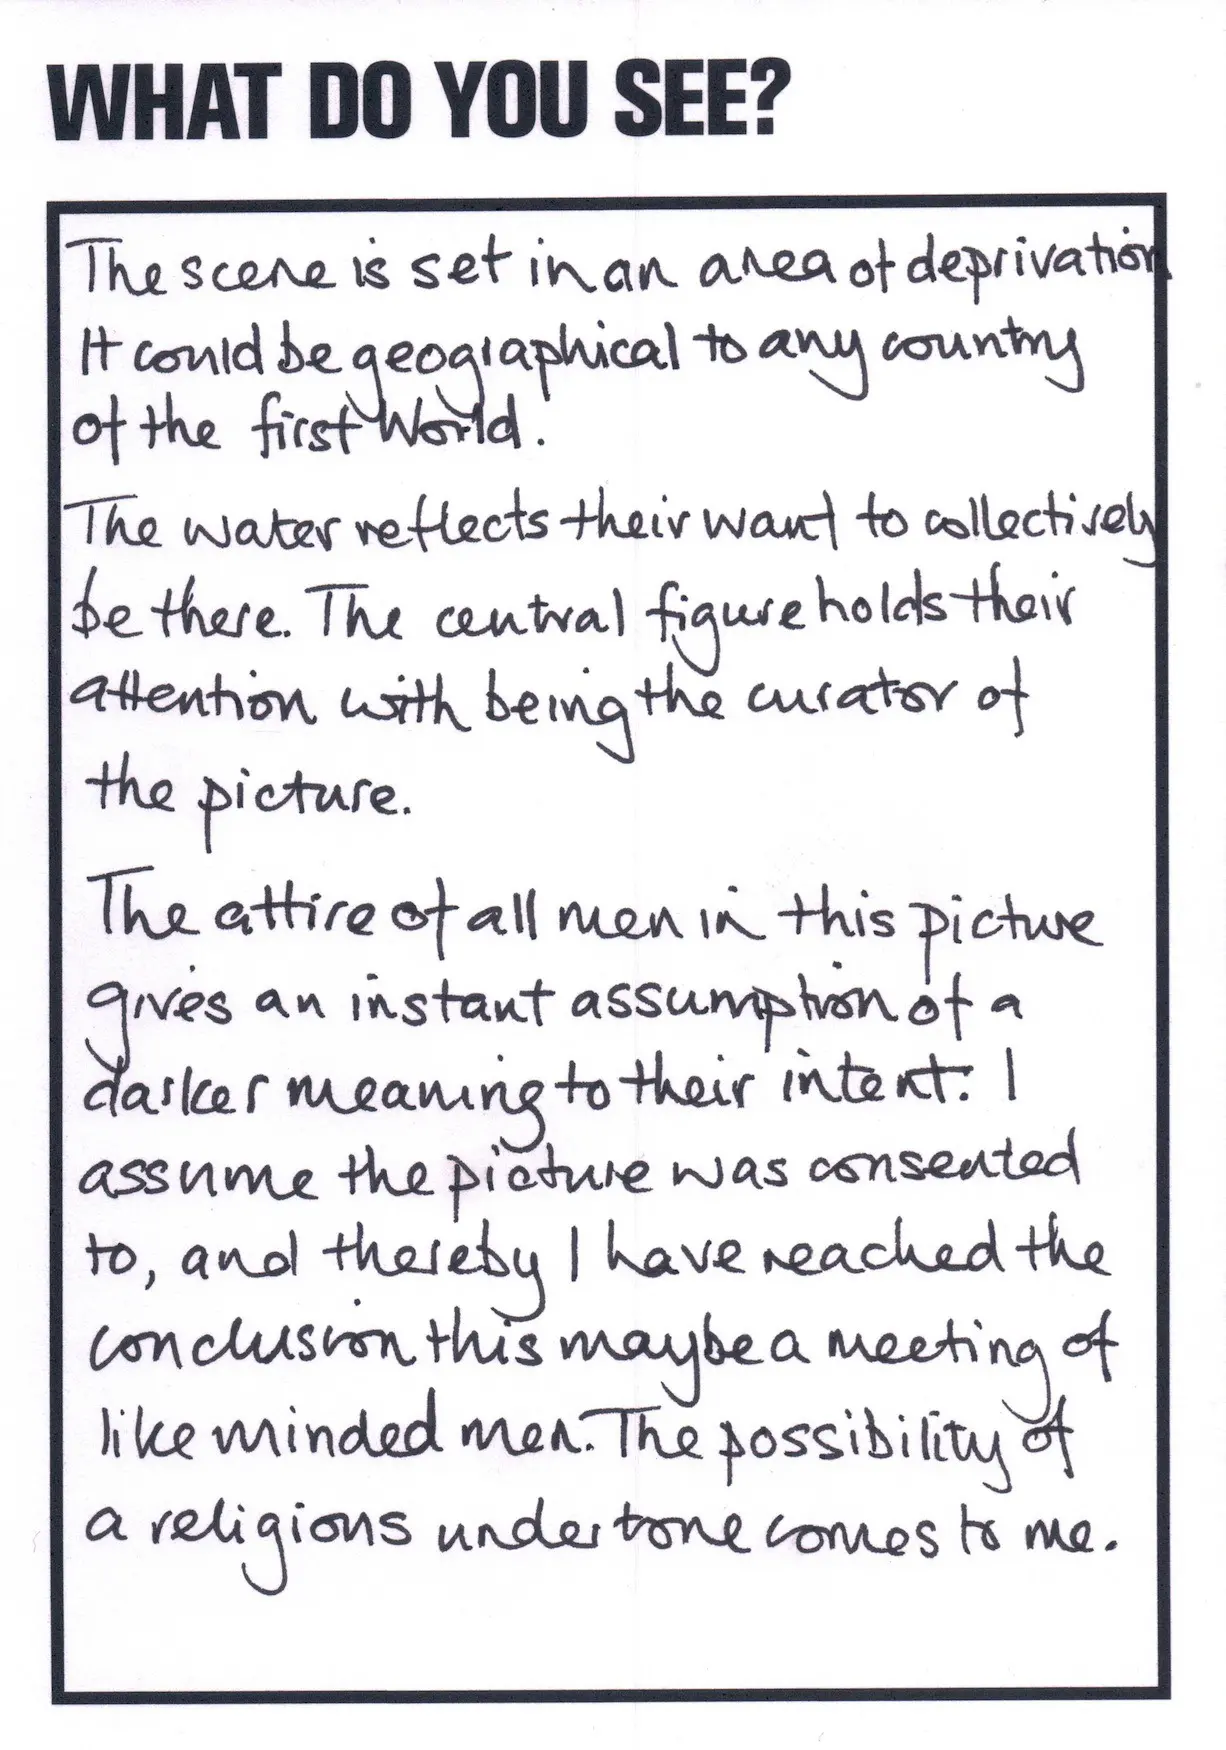 WHAT DO YOU SEE?
The scene is set in an area of deprivation
It could be geographical to any country
of the first World.
The water reflects their want to collectively
be there. The central figure holds their
attention with being the curator of
the picture.
The attire of all men in this picture
gives an instant assumption of a
darker meaning to their intent. I
assume the picture was consented
to, and thereby I have reached the
conclusion this maybe a meeting of
like minded men. The possibility of
a religious undertone comes to me.